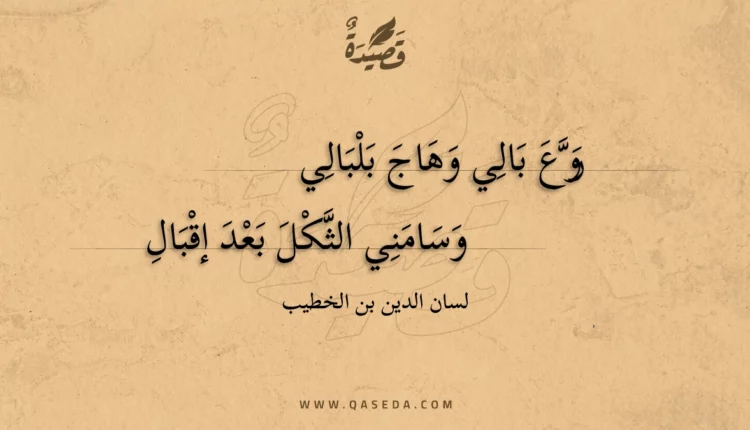 قَصِيْدَةٌ
رَوَّعَ بَالِي وَهَاجَ بَلْبَالِي
وَسَامَنِي الثَّكْلَ بَعْدَ إقْبَالِ
لسان الدين بن الخطيب
WWW.QASEDA.COM